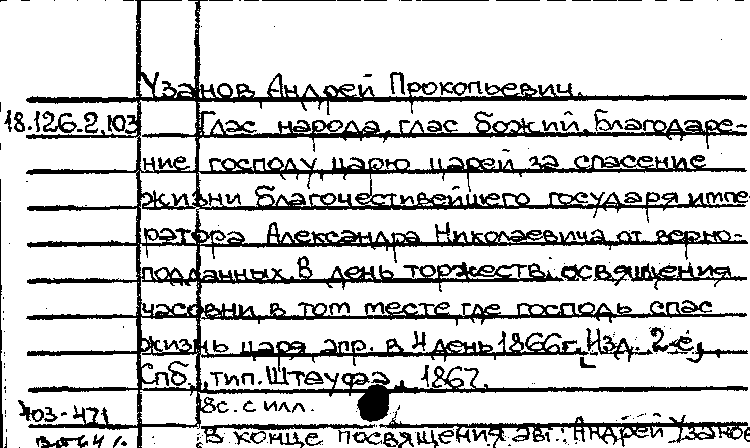 Узанов, Андрей Прокопьевич.
18.126.2.103 Глас народа, глас божий. Благодаре-
ние господу, царю царей, за спасение
жизни благочестивейшего государя импе
ратора Александра Николаевича, от верно-
подданных. В день торжеств. освящения
часовни, в том месте, где господь спас
жизнь царя, апр. в 4 день 1866г. Изд. 2-е,
Спб., тип. Штауфа, 1867.
8с. с илл.
В конце посвящения авт.: Андрей Узанов